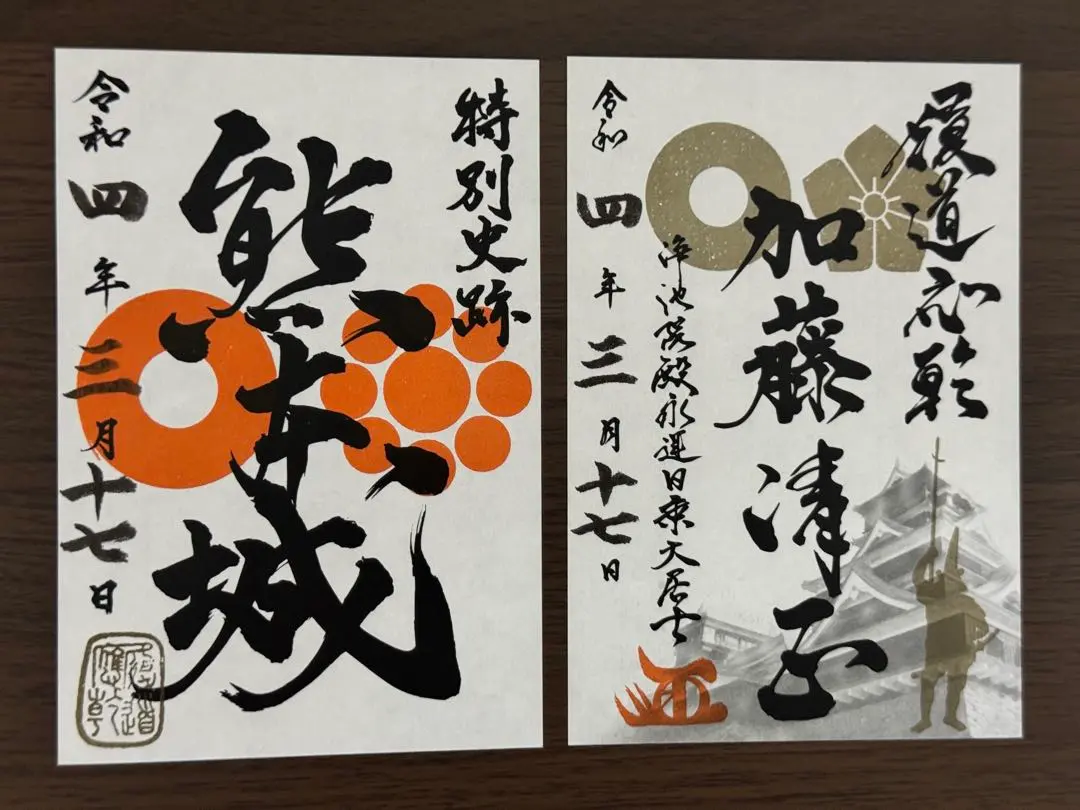 特別史跡
熊本城
令和四年三月十七日
加藤清正
浄池院殿永運日乗大居士
令和四年三月十七日